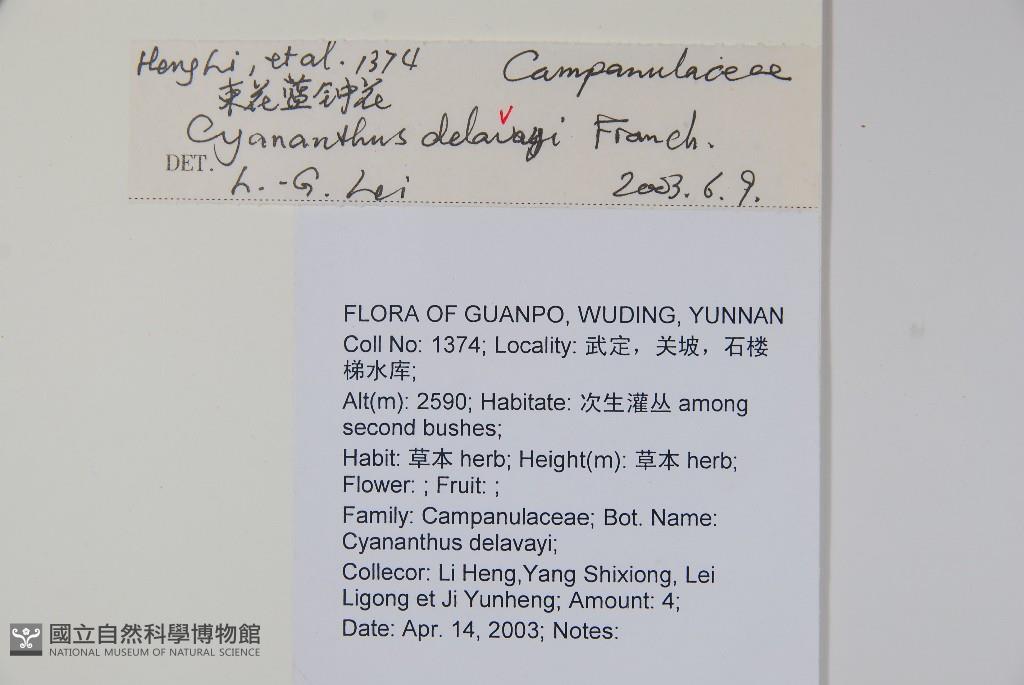 Heng Li, et al. 1374
Campanulaceae
束花蓝钟花
Cyananthus delavayi Franch.
DET.
L.-G. Lei
2003.6.9.
FLORA OF GUANPO, WUDING, YUNNAN
Coll No: 1374; Locality: 武定，关坡，石楼
梯水库;
Alt(m): 2590; Habitate: 次生灌丛 among
second bushes;
Habit: 草本 herb; Height(m): 草本 herb;
Flower: ; Fruit: ;
Family: Campanulaceae; Bot. Name:
Cyananthus delavayi;
Collecor: Li Heng,Yang Shixiong, Lei
Ligong et Ji Yunheng; Amount: 4;
Date: Apr. 14, 2003; Notes:
國立自然科學博物館
NATIONAL MUSEUM OF NATURAL SCIENCE